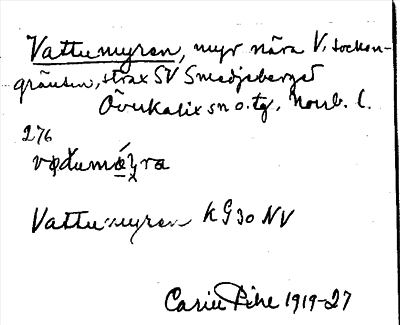 Vattumyren, myr nära V. socken-
gränsen, strax SV Smedjeberget
Överkalix sn o. tg, Norrb. l.
276
Vattumyren KG 30 NV
Carin Pihl 1919-27